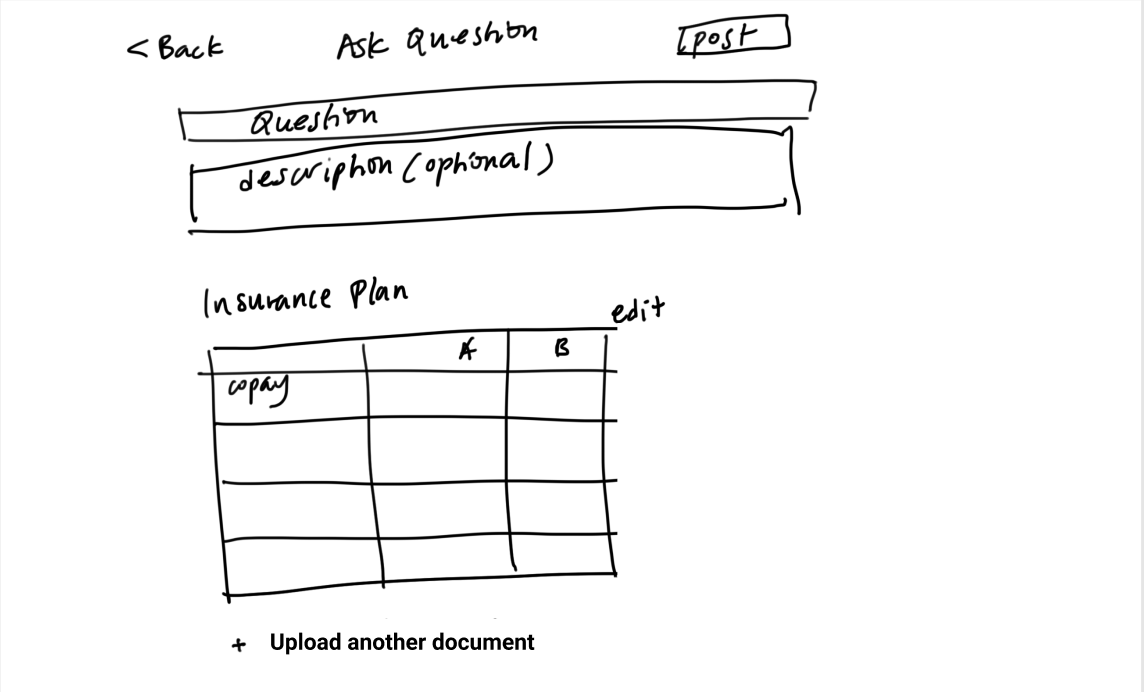 < Back Ask Question post
Question
description (optional)
Insurance Plan
edit
A B
copay
+ Upload another document